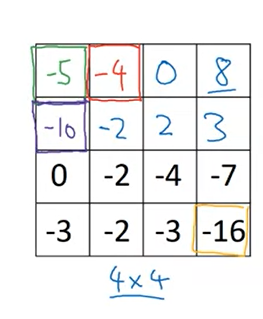 -5 -4 0 8
-10 -2 2 3
0 -2 -4 -7
-3 -2 -3 -16
4x4